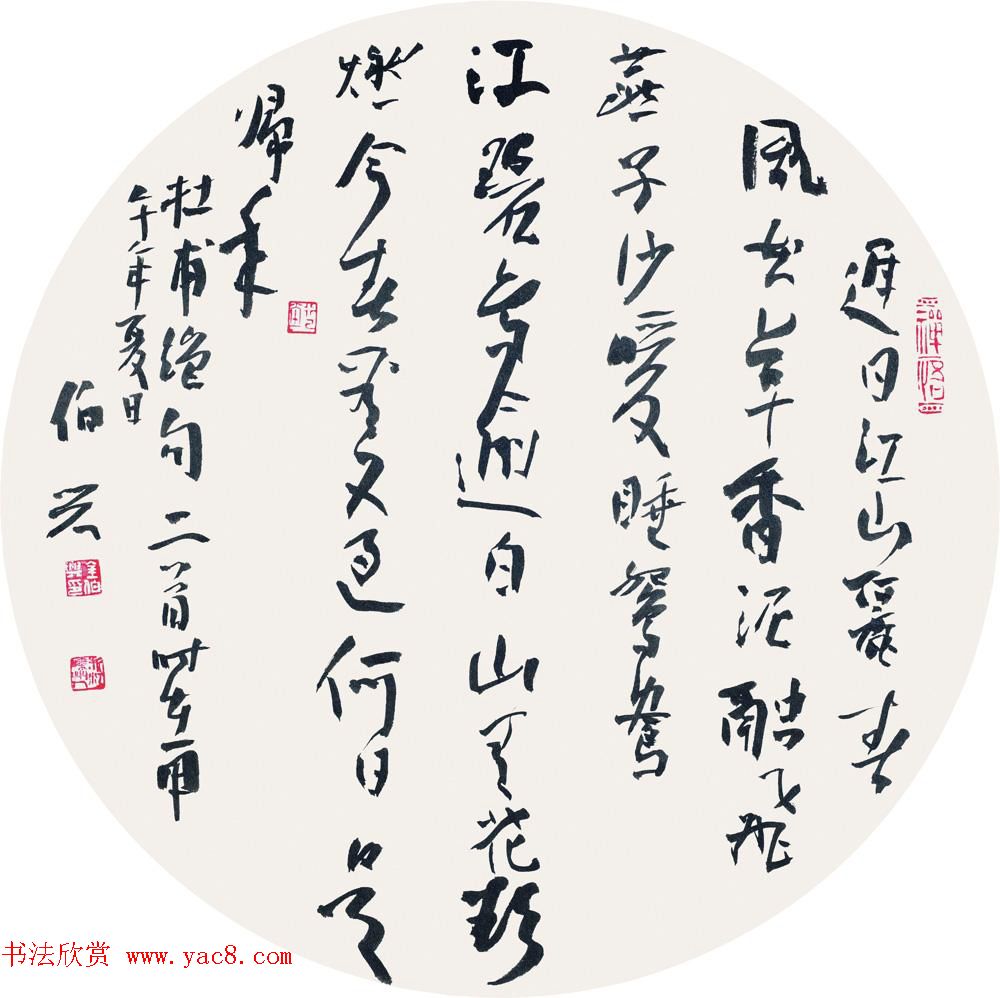 遲日江山麗春
風花草香泥融飛
燕子沙暖睡鴛鴦
江碧鳥逾白山青花欲
燃今春看又過何日是
歸年
杜甫絕句二首時在甲
午年夏日
伯兴
书法欣赏 www.yac8.com